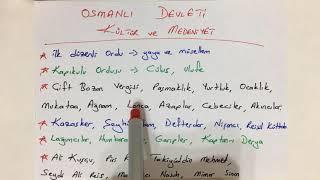 OSMANLI DEVLETİ
KÜLTÜR ve MEDENİYET
* İlk düzenli Ordu → yaya ve müsellem
* Kapıkulu Ordusu → Cülus, Ulufe
* Çift Bozan Vergisi, Paşmaklık, Yurtluk, Ocaklık,
Mukataa, Ayaan, Lonca, Azaplar, Cebeciler, Akıncılar,
* Kazasker, Defterdar, Nişancı, Reisül Küttab
* Lağımcılar, Garipler, Kaptanı Derya
* Ali Kuşçu, Piri Takiyüddin Mehmet,
Seydi Ali Reis, Nasuh, Mimar Sinan